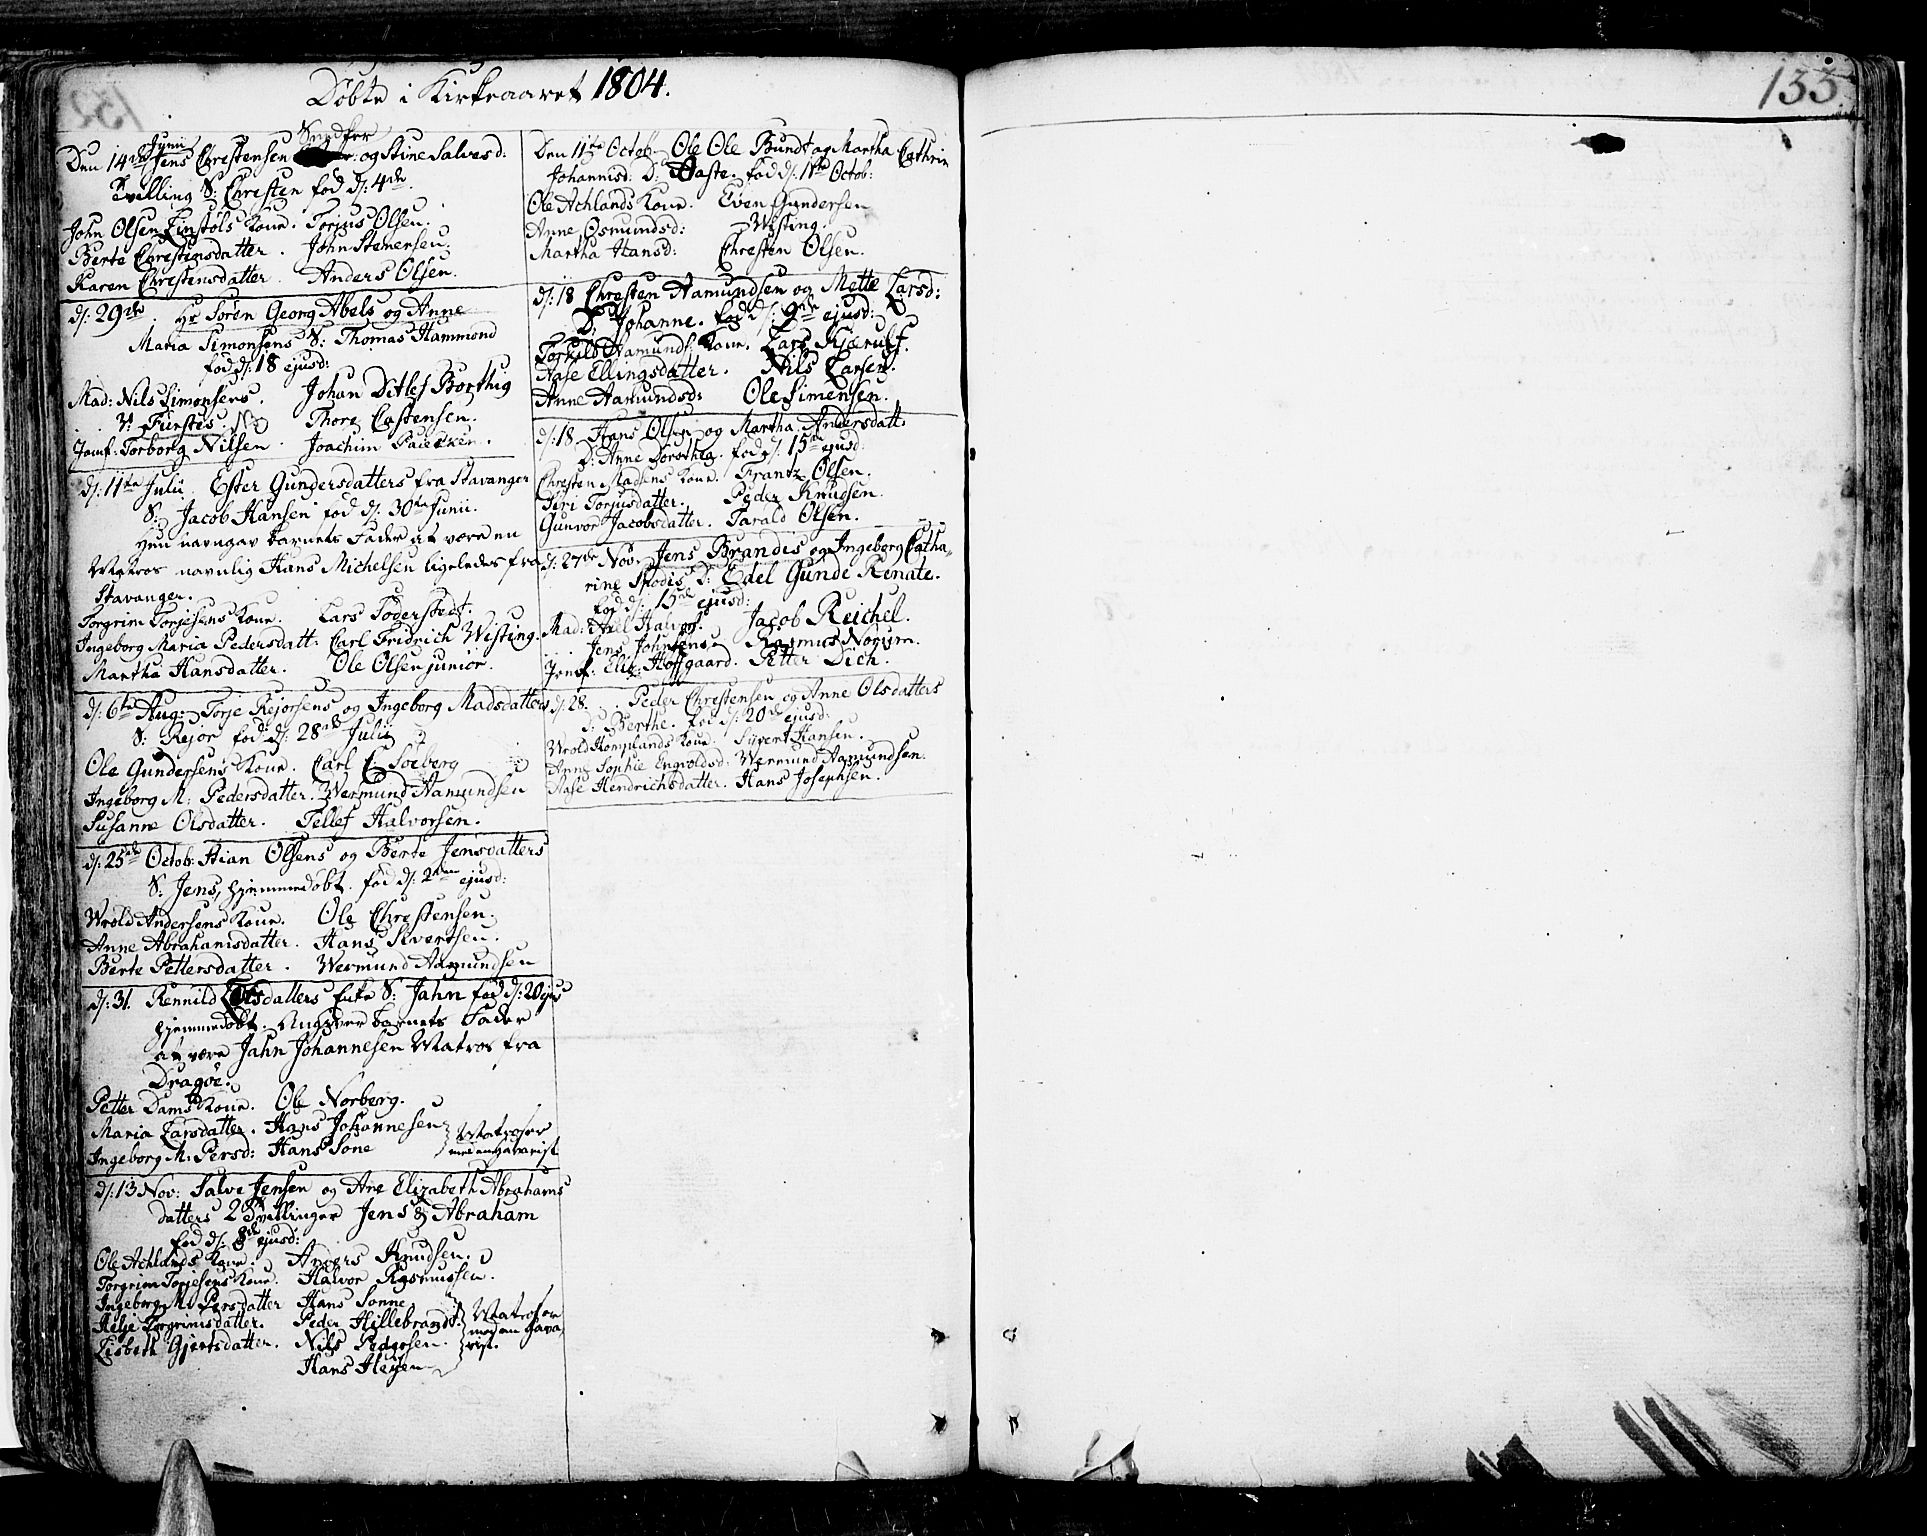 Døbte i Kirkeaaret 1804.
133
Snedker
Junii
Den 14de Jens Chrestensen og Stine Salvesd:
Tvilling S: Chresten fød d: 4de.
John Olsen Kone. Torjus Olsen.
Berte Chrestensdatter. John Stenersen.
Karen Chrestensdatter. Anders Olsen.
d: 29de. Hr Søren Georg Abels og Anne
Maria Simonsens S: Thomas Hammond
fød d: 18 ejusd:
Mad: Nils Simonsens. Johan Ditlef Borthig
Fürstes. Thore Castensen.
Jomf: Torborg Nilsen. Joachim
d: 11te Julii Ester Gundersdatters fra Stavanger
S: Jacob Hansen fød d: 30te Junii.
Hun navngav barnets Fader at være en
Matros navnlig Hans Michelsen ligeledes fra
Stavanger.
Torgrim Torjesens Kone. Lars Føderstedt.
Ingeborg Maria Pedersdatt: Carl Fridrich Wisting.
Martha Hansdatter. Ole Olsen junior.
d: 6te Aug: Torje Rejorsens og Ingeborg Madsdatters
S: Rejor fød d: 28de Julii
Ole Gundersens Kone. Carl C Soeberg
Ingeborg M: Pedersdatter. Wermund Aamundsen
Susanne Olsdatter. Tellef Halvorsen.
d: 25de Octob: Stian Olsens og Berte Jensdatters
S: Jens, hjemmedøbt. fød d: 2den ejusd:
Wrold Andersens Kone. Ole Chrestensen.
Anne Abrahamsdatter. Hans Sivertsen.
Berte Pettersdatter. Wermund Aamundsen
d: 31. Rennild Olsdatters Enke S: Jahn fød d: 20 ejus
hjemmedøbt. Angiver barnets Fader
at være Jahn Johannesen Matros fra
Dragøe.
Petter Dams Kone. Ole Norberg.
Maria Larsdatter. Hans Johannesen Matroser
Ingeborg M: Persd: Hans Sone med en Havarist
d: 13 Nov: Salve Jensen og Ane Elizabeth Abrahams
datters 2 Tvillinger Jens & Abraham
fød d: 8de ejusd:
Ole Achlands Kone. Anders Knudsen.
Torgrim Torjesens Kone. Halvor Rasmussen.
Ingeborg M: Persdatter Hans Sonne
Helje Torgrimsdatter. Peder Hillebrandt. Matroser
Lisbeth Gjertsdatter. Nils Pedersen. med en Hava
rist.
Hans Heisen
Den 11te Octob. Ole Ole Bundt og Martha Cathrin
Johannisd: D: Aaste. fød d: 1te Octob:
Ole Achlands Kone. Even Gundersen
Anne Osmundsd: Wisting.
Martha Hansd: Chresten Olsen.
d: 18 Chresten Aamundsen og Mette Larsd:
D: Johanne. fød d: 9de ejusd:
Torkild Aamunds: Kone. Lars Kjærulf.
Aase Ellingsdatter. Nils Larsen.
Anne Aamundsd: Ole Simensen.
d: 18. Hans Olsen og Martha Andersdatt.
D: Anne Dorothea. fød d: 15de ejusd.
Chresten Madsens Kone. Frantz Olsen.
Siri Torjusdatter. Peder Knudsen.
Gunvor Jacobsdatter. Tarald Olsen.
d: 27de Nov. Jens Brandis og Ingeborg Catha,
rine D: Edel Gunde Renate.
fød d: 15de ejusd:
Mad: Axel Halvors. Jacob Reichel.
Jens Johnsens Rasmus Norum.
Jomf: Eliz: Hoffgaard. Petter Dich.
d: 28. Peder Chrestensen og Anne Olsdatters
D: Berthe. fød d: 20de ejusd:
Wrold Komplands Kone. Sivert Hansen.
Anne Sophie Engvoldsd: Wermund Aamundsen.
Aase Hendrichsdatter. Hans Josephsen.